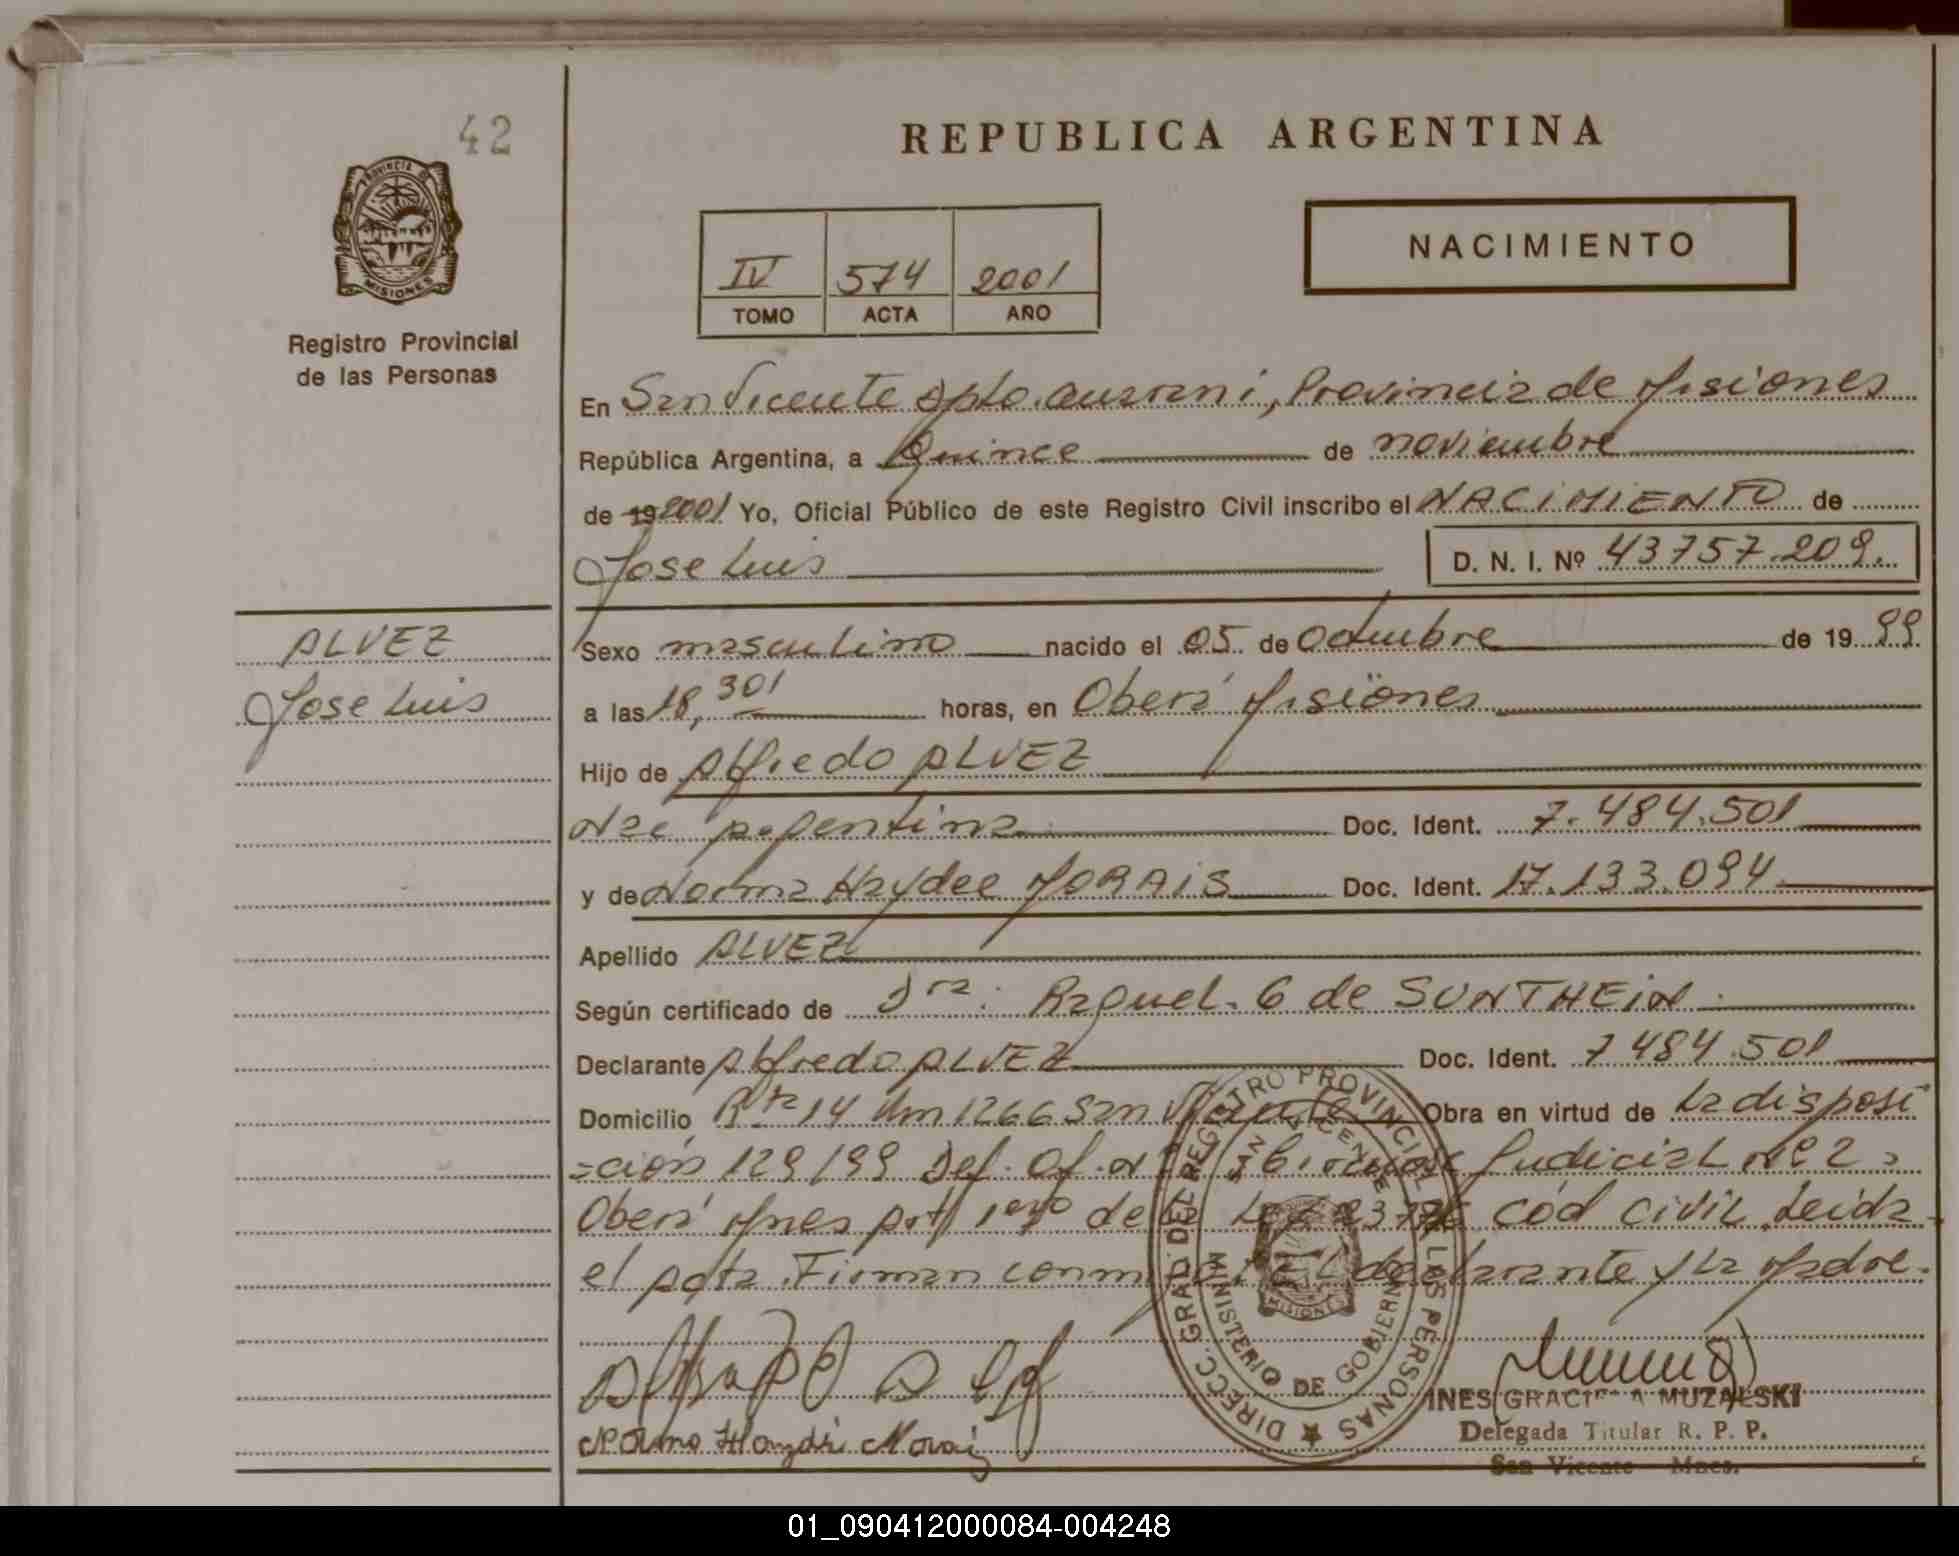 42
REPUBLICA ARGENTINA
PROVINCIA DE
MISIONES
Registro Provincial
de las Personas
IV 574 2001
TOMO ACTA AÑO
NACIMIENTO
En San Vicente Dpto. Guarani, Provincia de Misiones
República Argentina, a Quince de noviembre
de 19 2001 Yo, Oficial Público de este Registro Civil inscribo el NACIMIENTO de
Jose Luis D. N. I. Nº 43757.209.
ALVEZ
Jose Luis
Sexo masculino nacido el 05 de Octubre de 1999
a las 18,30 horas, en Oberá Misiones
Hijo de Alfredo ALVEZ
Nac Argentina Doc. Ident. 7.484.501
y de Norma Haydee MORAIS Doc. Ident. 17.133.094
Apellido ALVEZ
Según certificado de Dra. Raquel. G de SONTHEIN
Declarante Alfredo ALVEZ Doc. Ident. 7484.501
Domicilio Rta 14 Km 1266 San Vicente Obra en virtud de La disposi
=ción 129/99 Def. Of. Nº Judicial nº 2 =
Oberá Mnes Art 1ero de Cód Civil. Leida
el Acta. Firman conmigo el declarante y la Madre.
DIRECC. GRAL DEL REGISTRO PROVINCIAL DE LAS PERSONAS
SAN VICENTE
MISIONES
MINISTERIO DE GOBIERNO
Norma Haydé Morais
INES GRACIELA MUZALSKI
Delegada Titular R. P. P.
San Vicente - Mnes.
01_090412000084-004248